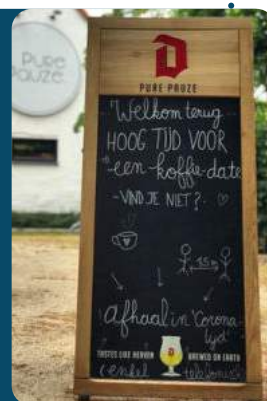 PURE
PAUZE
D
PURE PAUZE
Welkom terug
HOOG TIJD VOOR
een koffie-date
- VIND JE NIET?
1.5m
Afhaal in 'Corona-
tijd'
TASTES LIKE HEAVEN BREWED ON EARTH
(enkel telefonisch